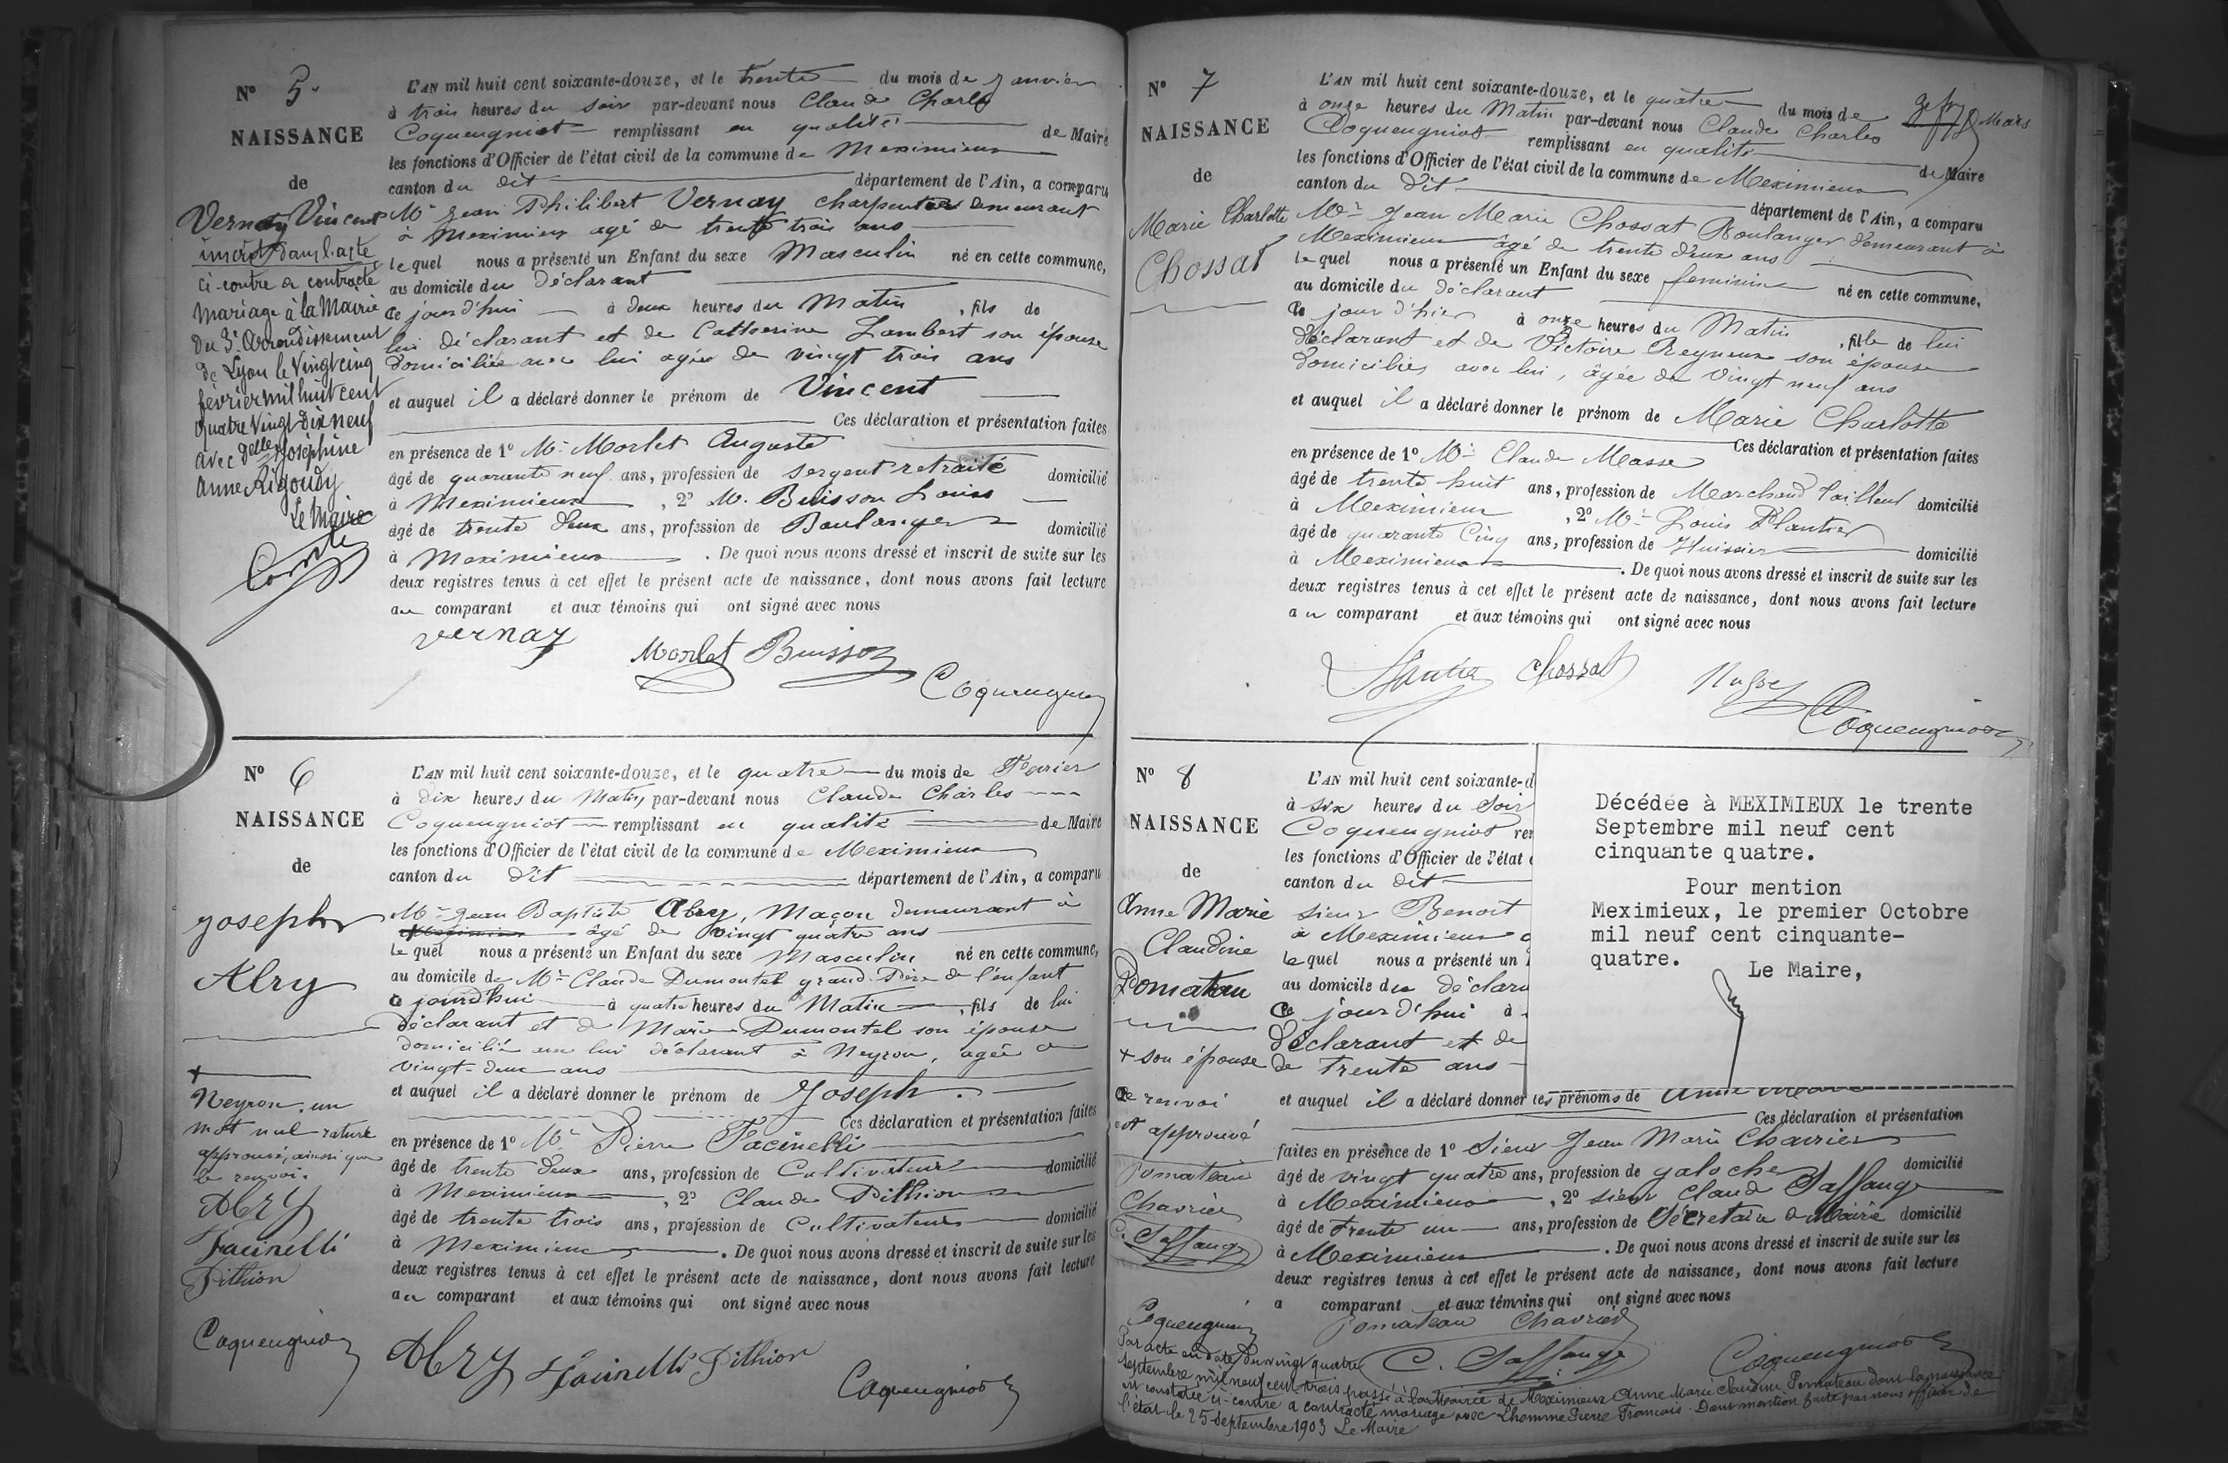 N° 5.
NAISSANCE
de
Vernay Vincent
inscrit dans l'acte
ci-contre a contracté
mariage à la Mairie
du 3e Arrondissement
de Lyon le Vingt cinq
février mil huit cent
quatre Vingt Dix neuf
avec Delle Joséphine
Anne Rigoudy
Le Maire
L'AN mil huit cent soixante-douze, et le trente du mois de Janvier
à trois heures du soir par-devant nous Claude Charles
Coquengniot remplissant en qualité de Maire
les fonctions d'Officier de l'état civil de la commune de Meximieux
canton du dit département de l'Ain, a comparu
Mr Jean Philibert Vernay charpentier demeurant
à Meximieux agé de trente trois ans
lequel nous a présenté un Enfant du sexe Masculin né en cette commune,
au domicile du Déclarant
Ce jourd'hui à deux heures du Matin, fils de
lui déclarant et de Catherine Lambert son épouse
domiciliée avec lui agée de vingt trois ans
et auquel il a déclaré donner le prénom de Vincent
Ces déclaration et présentation faites
en présence de 1° Mr Morlet Auguste
âgé de quarante neuf ans, profession de sergent retraité domicilié
à Meximieux, 2° M. Buisson Louis
âgé de trente deux ans, profession de Boulanger domicilié
à Meximieux. De quoi nous avons dressé et inscrit de suite sur les
deux registres tenus à cet effet le présent acte de naissance, dont nous avons fait lecture
au comparant et aux témoins qui ont signé avec nous
Vernay
Morlet Buisson
Coquengniot
N° 6
NAISSANCE
de
Joseph
Abry
+
Neyron. un
mot nul rature
approuvé, ainsi que
le renvoi.
Abry
Facinelli
Pithion
Coquengniot
L'AN mil huit cent soixante-douze, et le quatre du mois de Février
à dix heures du Matin par-devant nous Claude Charles
Coquengniot remplissant en qualité de Maire
les fonctions d'Officier de l'état civil de la commune de Meximieux
canton du dit département de l'Ain, a comparu
Mr Jean Baptiste Abry, Maçon demeurant à
+ Meximieux âgé de vingt quatre ans
lequel nous a présenté un Enfant du sexe Masculin né en cette commune,
au domicile de Mr Claude Dumontel grand Père de l'enfant
Ce jourd'hui à quatre heures du Matin, fils de lui
déclarant et de Marie Dumontel son épouse
domiciliée avec lui déclarant à Neyron, agée de
vingt-deux ans
et auquel il a déclaré donner le prénom de Joseph.
Ces déclaration et présentation faites
en présence de 1° Mr Pierre Facinelli
âgé de trente deux ans, profession de Cultivateur domicilié
à Meximieux, 2° Claude Pithion
âgé de trente trois ans, profession de Cultivateur domicilié
à Meximieux. De quoi nous avons dressé et inscrit de suite sur les
deux registres tenus à cet effet le présent acte de naissance, dont nous avons fait lecture
au comparant et aux témoins qui ont signé avec nous
Abry Facinelli Pithion
Coquengniot
N° 7
NAISSANCE
de
Marie Charlotte
Chossat
L'AN mil huit cent soixante-douze, et le quatre du mois de Mars
à onze heures du Matin par-devant nous Claude Charles
Coquengniot remplissant en qualité de Maire
les fonctions d'Officier de l'état civil de la commune de Meximieux
canton du dit département de l'Ain, a comparu
Mr Jean Marie Chossat Boulanger demeurant à
Meximieux âgé de trente deux ans
lequel nous a présenté un Enfant du sexe feminin né en cette commune,
au domicile du déclarant
Ce jour d'hier à onze heures du Matin, fille de lui
déclarant et de Victoire Reyneux son épouse
domiciliée avec lui, âgée de vingt neuf ans
et auquel il a déclaré donner le prénom de Marie Charlotte
Ces déclaration et présentation faites
en présence de 1° Mr Claude Masse
âgé de trente huit ans, profession de Marchand tailleur domicilié
à Meximieux, 2° Mr Louis Plantier
âgé de quarante Cinq ans, profession de Huissier domicilié
à Meximieux. De quoi nous avons dressé et inscrit de suite sur les
deux registres tenus à cet effet le présent acte de naissance, dont nous avons fait lecture
au comparant et aux témoins qui ont signé avec nous
Plantier Chossat Masse
Coquengniot
N° 8
NAISSANCE
de
Anne Marie
Claudine
Pomateau
+ son épouse
Ce renvoi
est approuvé
Pomateau
Chavrier
C. Saffange
Coquengniot
L'AN mil huit cent soixante-d
à six heures du Soir
Coquengniot rem
les fonctions d'Officier de l'état
canton du dit
sieur Benoit
à Meximieux
lequel nous a présenté un
au domicile du déclara
Ce jour d'hui à
déclarant et de
de trente ans
et auquel il a déclaré donner les prénoms de Anne Marie
Ces déclaration et présentation
faites en présence de 1° Sieur Jean Marie Chavrier
âgé de vingt quatre ans, profession de galocher domicilié
à Meximieux, 2° sieur Claude Saffange
âgé de trente un ans, profession de Sécretaire de Mairie domicilié
à Meximieux. De quoi nous avons dressé et inscrit de suite sur les
deux registres tenus à cet effet le présent acte de naissance, dont nous avons fait lecture
a comparant et aux témoins qui ont signé avec nous
Pomateau Chavrier
C. Saffange
Coquengniot
Par acte en date du vingt quatre
septembre mil neuf cent trois passé à la Mairie de Meximieux Anne Marie Claudine Pomateau dont la naissance
est constatée ci-contre a contracté mariage avec Lhomme Pierre François. Dont mention faite par nous officier de
l'état le 25 Septembre 1903 Le Maire
Décédée à MEXIMIEUX le trente
Septembre mil neuf cent
cinquante quatre.
Pour mention
Meximieux, le premier Octobre
mil neuf cent cinquante-
quatre.
Le Maire,